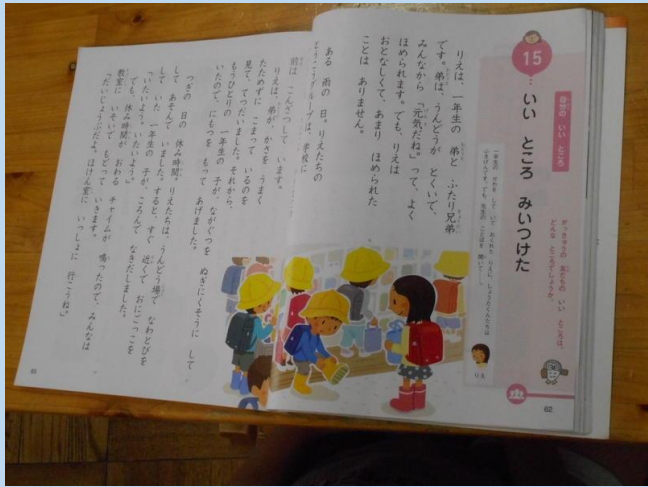 15
いい ところ みいつけた
自分の いい ところ
どんな ところでしょうか。
りえ
りえは、一年生の 弟と ふたり兄弟
です。弟は、うんどうが とくいで、
みんなから 「元気だね。」って、よく
ほめられます。でも、りえは
おとなしくて、あまり ほめられた
ことは ありません。
ある 雨の 日。りえたちの
前は こんざつして います。
りえは、弟が、かさを うまく
たためずに こまって いるのを
見て、てつだいました。それから、
もうひとりの 一年生の 子が、ながぐつを ぬぎにくそうに して
いたので、にもつを もって あげました。
つぎの 日の 休み時間。りえたちは、うんどう場で なわとびを
して あそんで いました。すると、すぐ 近くで おにごっこを
して いた 一年生の 子が、ころんで なきだしました。
「いたいよう。いたいよう。」
でも、休み時間が おわる チャイムが 鳴ったので、みんなは
教室に いそいで もどって いきます。
「だいじょうぶだよ。ほけん室に いっしょに 行こうね。」
62
63